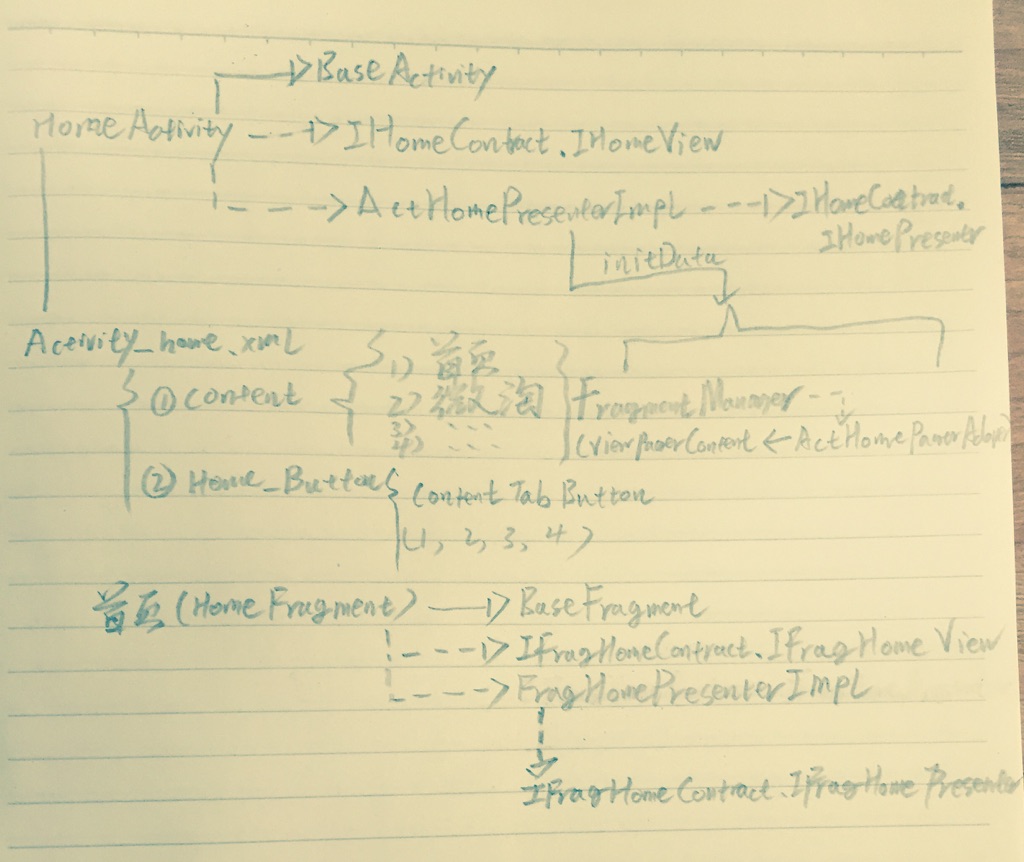 BaseActivity
HomeActivity
IHomeContract.IHomeView
ActHomePresenterImpl
IHomeContract.
IHomePresenter
initData
Activity_home.xml
① Content
1) 首页
2) 微淘
3) ...
4) ...
FragmentManager
(ViewPagerContent ← ActHomePagerAdapter)
② Home_Button
Content Tab Button
(1, 2, 3, 4)
首页 (HomeFragment)
BaseFragment
IFragHomeContract.IFragHomeView
FragHomePresenterImpl
IFragHomeContract.IFragHomePresenter